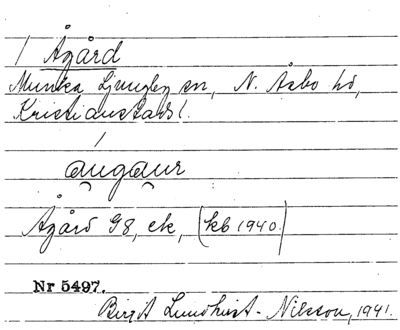 / Ågård
Munka Ljungby sn, N. Åsbo hd,
Kristianstads l.
au̯gau̯r
Ågård 98, ek, (kb 1940.)
Nr 5497.
Birgit Lundqvist-Nilsson, 1941.